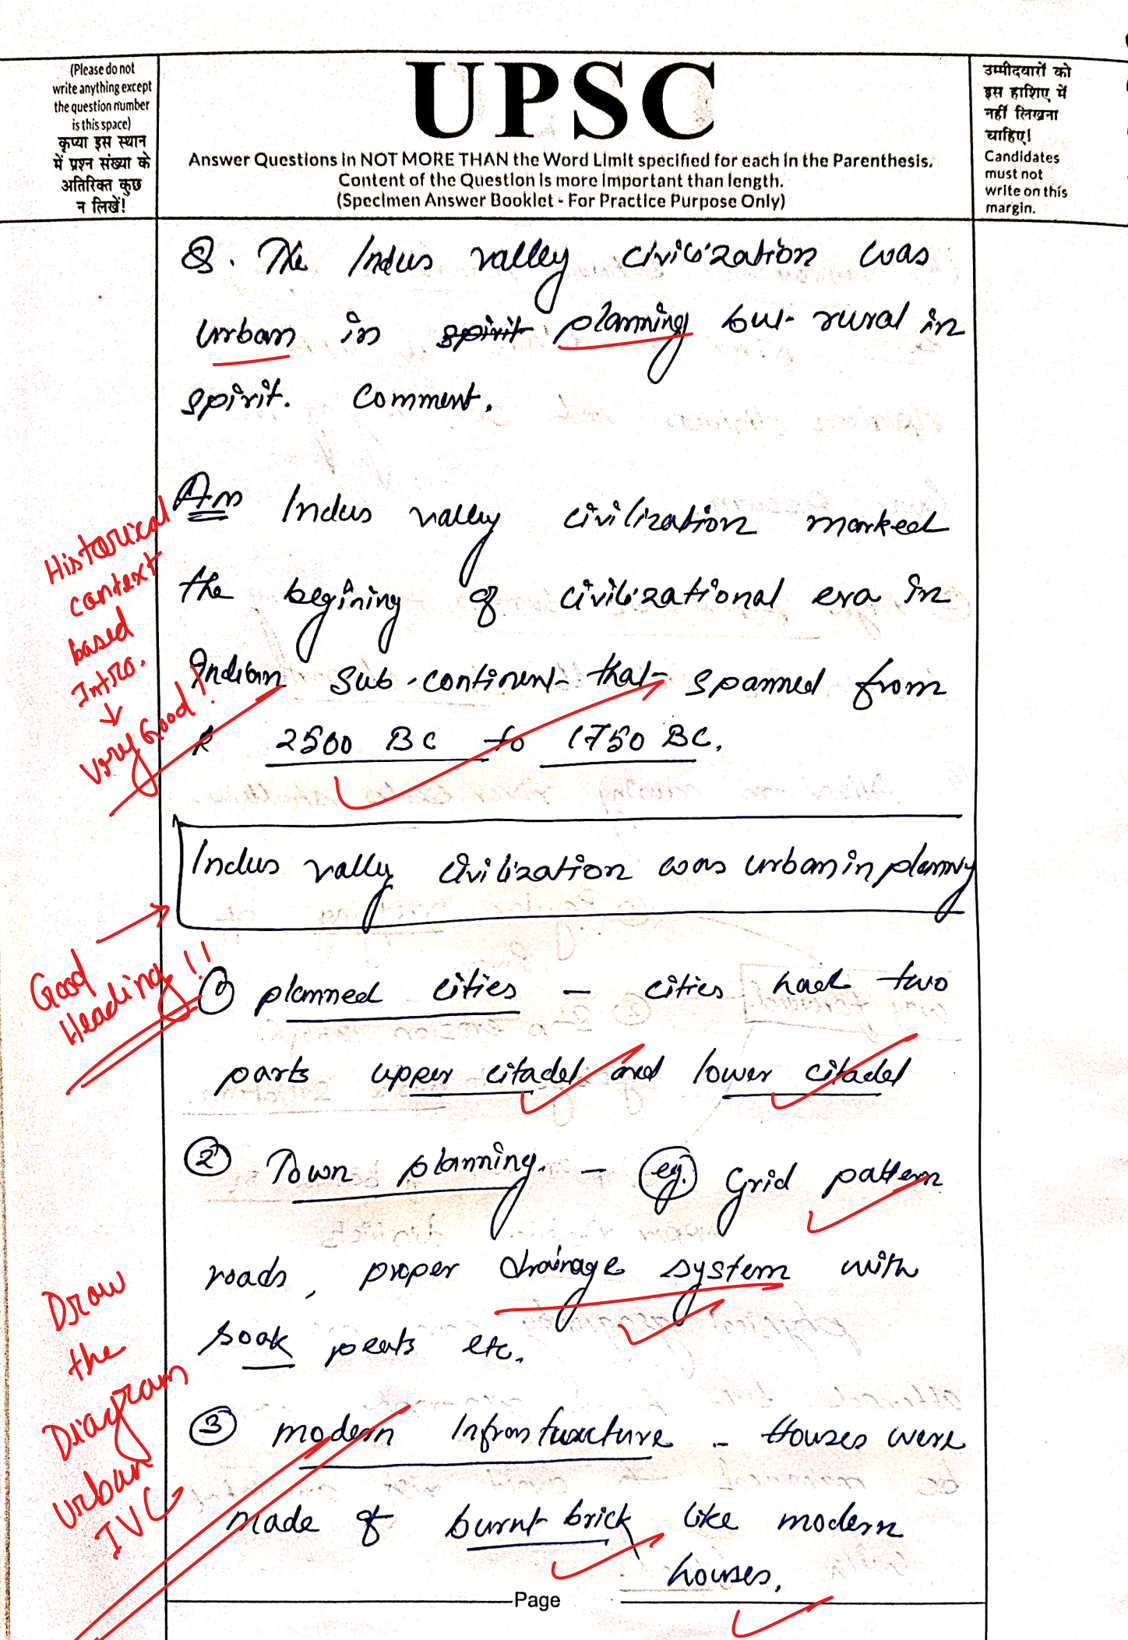 (Please do not
write anything except
the question number
is this space)
कृप्या इस स्थान
में प्रश्न संख्या के
अतिरिक्त कुछ
न लिखें!
UPSC
Answer Questions in NOT MORE THAN the Word Limit specified for each in the Parenthesis.
Content of the Question is more important than length.
(Specimen Answer Booklet - For Practice Purpose Only)
उम्मीदवारों को
इस हाशिए में
नहीं लिखना
चाहिए!
Candidates
must not
write on this
margin.
Q. The Indus valley civilization was
urban in spirit planning but rural in
spirit. Comment.
Ans Indus valley civilization marked
the begining of civilizational era in
Indian sub-continent that spanned from
2500 BC to 1750 BC.
Historical
context
based
Intro.
↓
Very Good!
Indus vally civilization was urban in planning
Good
Heading!!
① planned cities – cities had two
parts upper citadel and lower citadel
② Town planning. – eg. Grid pattern
roads, proper drainage system with
soak peats etc.
Draw
the
Diagram
urban
IVC
③ modern Infrastructure – Houses were
made of burnt brick like modern
houses.
Page